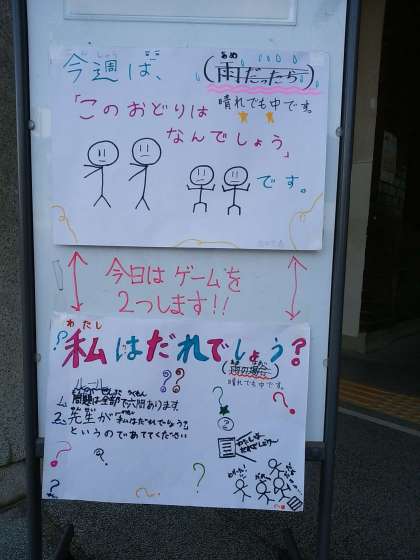 今週は、
(雨だったら)
あめ
晴れでも中です。
「このおどりは
なんでしょう」
です。
今日はゲームを
2つします!!
わたし
私はだれでしょう?
(雨の場合)
晴れでも中です。
ルール
1. 問題は全部で六問あります
2. 先生が「私はだれでしょう?」
というのであててください